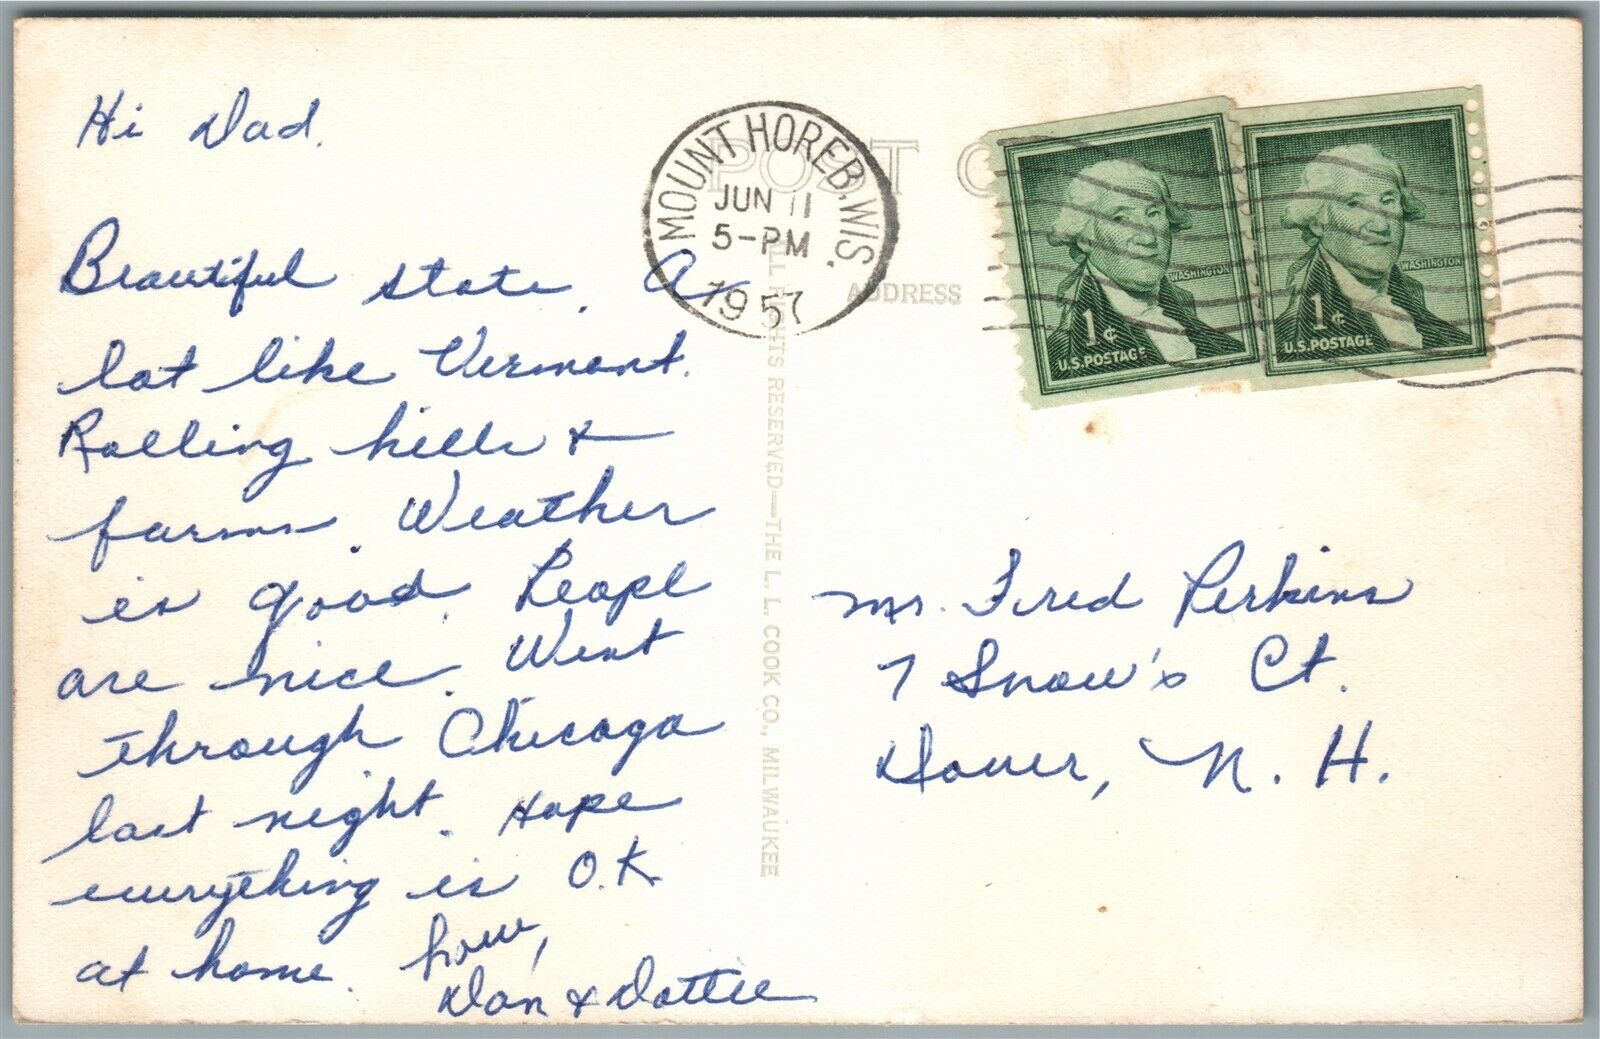 Hi Dad.
Beautiful state. A
lot like Vermont.
Rolling hills &
farms. Weather
is good. Peopl
are nice. Went
through Chicago
last night. Hope
everything is O.K.
at home. Love,
Don & Dottie
MOUNT HOREB, WIS.
JUN 11
5-PM
1957
POST C
ADDRESS
ALL RIGHTS RESERVED—THE L. L. COOK CO., MILWAUKEE
WASHINGTON
1¢
U.S. POSTAGE
WASHINGTON
1¢
U.S. POSTAGE
Mr. Fred Perkins
7 Snow's Ct.
Dover, N. H.